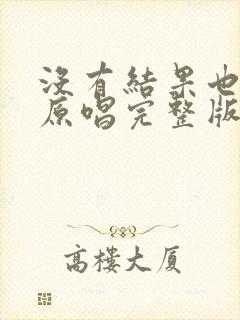 沒有結果也
原唱完整版
高樓大厦